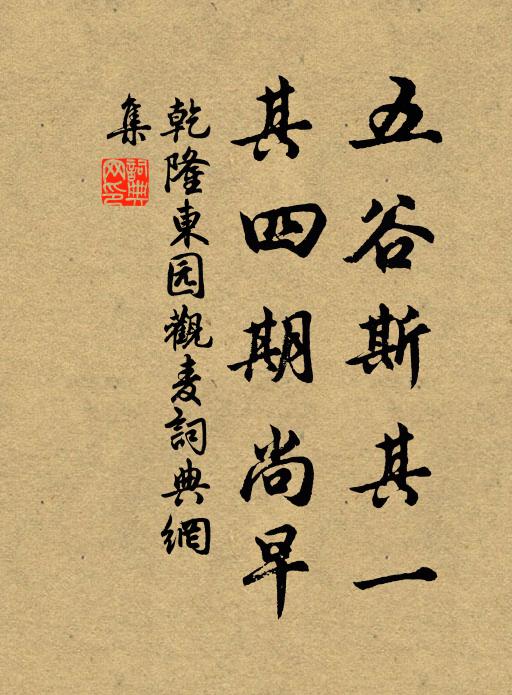 五谷斯其一
其四期尚早
乾隆東园觀麦詞典網
集
詞典网印